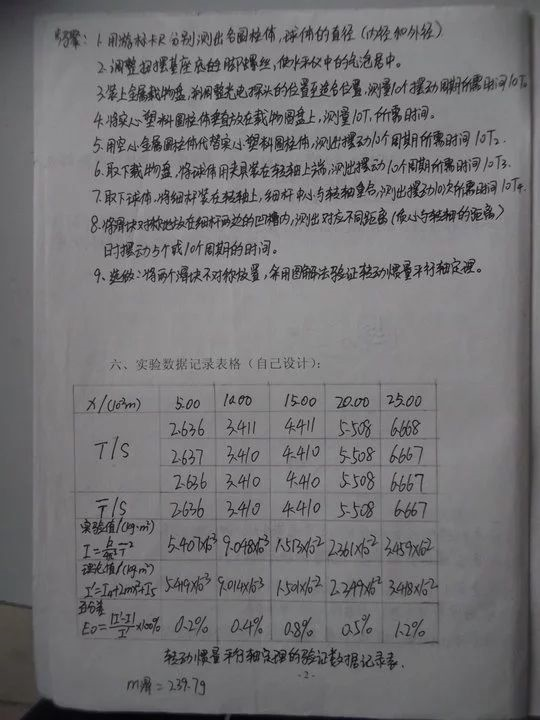 步骤: 1. 用游标卡尺分别测出各圆柱体,球体的直径(内径和外径)
2. 调整扭摆基座底的脚螺丝,使水平仪中的气泡居中。
3. 装上金属载物盘,并调整光电探头的位置至适合位置,测量10个摆动周期所需时间10T₀
4. 将实心塑料圆柱体垂直放在载物圆盘上,测量10T₁所需时间。
5. 用空心金属圆柱体代替实心塑料圆柱体,测出摆动10个周期所需时间10T₂.
6. 取下载物盘,将球体用夹具装在转轴上端,测出摆动10个周期所需时间10T₃.
7. 取下球体,将细杆装在转轴上,细杆中心与转轴重合,测出摆动10次所需时间10T₄.
8. 将滑块对称地放在细杆两边的凹槽内,测出对应不同距离(质心与转轴的距离)
时摆动5个或10个周期的时间。
9. 选做:将两个滑块不对称放置,采用图解法验证转动惯量平行轴定理。
六、实验数据记录表格(自己设计):
X/(10⁻²m) 5.00 10.00 15.00 20.00 25.00
T/S
2.636 3.411 4.411 5.508 6.668
2.637 3.410 4.410 5.508 6.667
2.636 3.410 4.410 5.508 6.667
T̅/S 2.636 3.410 4.410 5.508 6.667
实验值/(kg·m²)
I=k/4π² T̅² 5.407×10⁻³ 9.048×10⁻³ 1.513×10⁻² 2.361×10⁻² 3.459×10⁻²
理论值/(kg·m²)
I'=I₄+2mx²+I₅ 5.419×10⁻³ 9.014×10⁻³ 1.501×10⁻² 2.349×10⁻² 3.418×10⁻²
百分差
E₀=|I'-I|/I'×100% 0.2% 0.4% 0.8% 0.5% 1.2%
转动惯量平行轴定理的验证数据记录表.
- 2 -
m滑=239.7g